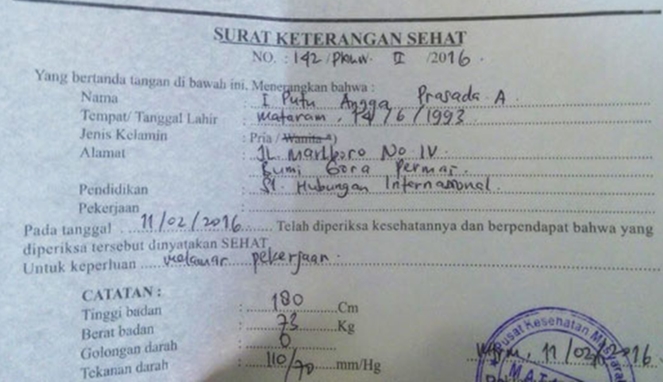 SURAT KETERANGAN SEHAT
NO. : 142/PKMW. II /2016.
Yang bertanda tangan di bawah ini, Menerangkan bahwa :
Nama : I Putu Angga Prasada A.
Tempat/ Tanggal Lahir : Mataram, 14/6/1993
Jenis Kelamin : Pria / Wanita *)
Alamat : JL. Marlboro No IV
Bumi Gora Permai.
Pendidikan : S1. Hubungan Internasional.
Pekerjaan :
Pada tanggal 11/02/2016 Telah diperiksa kesehatannya dan berpendapat bahwa yang
diperiksa tersebut dinyatakan SEHAT.
Untuk keperluan melamar pekerjaan.
CATATAN :
Tinggi badan : 180 Cm
Berat badan : 73 Kg
Golongan darah : O
Tekanan darah : 110/70 mm/Hg
Pusat Kesehatan Masyara
Mtrm, 11/02/2016
MATA